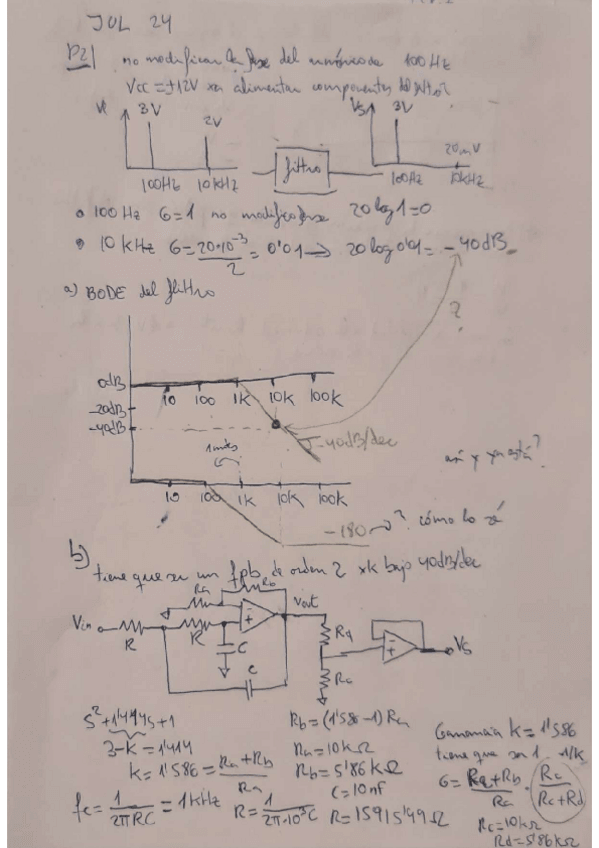 JUL 24
P2| no modificar la fase del armónico de 100Hz
Vcc=±12V xa alimentar componentes del filtro
Vi 3V 2V
100Hz 10kHz
filtro
Vs 3V 20mV
100Hz 10kHz
• 100Hz G=1 no modifico fase 20log1=0
• 10 kHz G=20·10^-3/2=0'01→ 20log0'01=-40dB
?
a) BODE del filtro
0dB
-20dB
-40dB
10 100 1K 10K 100K
-40dB/dec
1 antes
así y ya está?
10 100 1K 10K 100K
-180 ? cómo lo sé
b)
tiene que ser un fpb de orden 2 xk bajo 40dB/dec
Ra Rb
Vin R R - + Vout
C
C
Rd
Rc
- + Vs
S²+1'414S+1
3-K=1'414
K=1'586=Ra+Rb/Ra
fc=1/2πRC=1KHz
Rb=(1'586-1)Ra
Ra=10kΩ
Rb=5'86kΩ
C=10nF
R=1/2π·10³C R=15915'49Ω
Ganancia K=1'586
tiene que ser 1 1/K
G=Ra+Rb/Ra · Rc/Rc+Rd
Rc=10kΩ
Rd=5'86kΩ